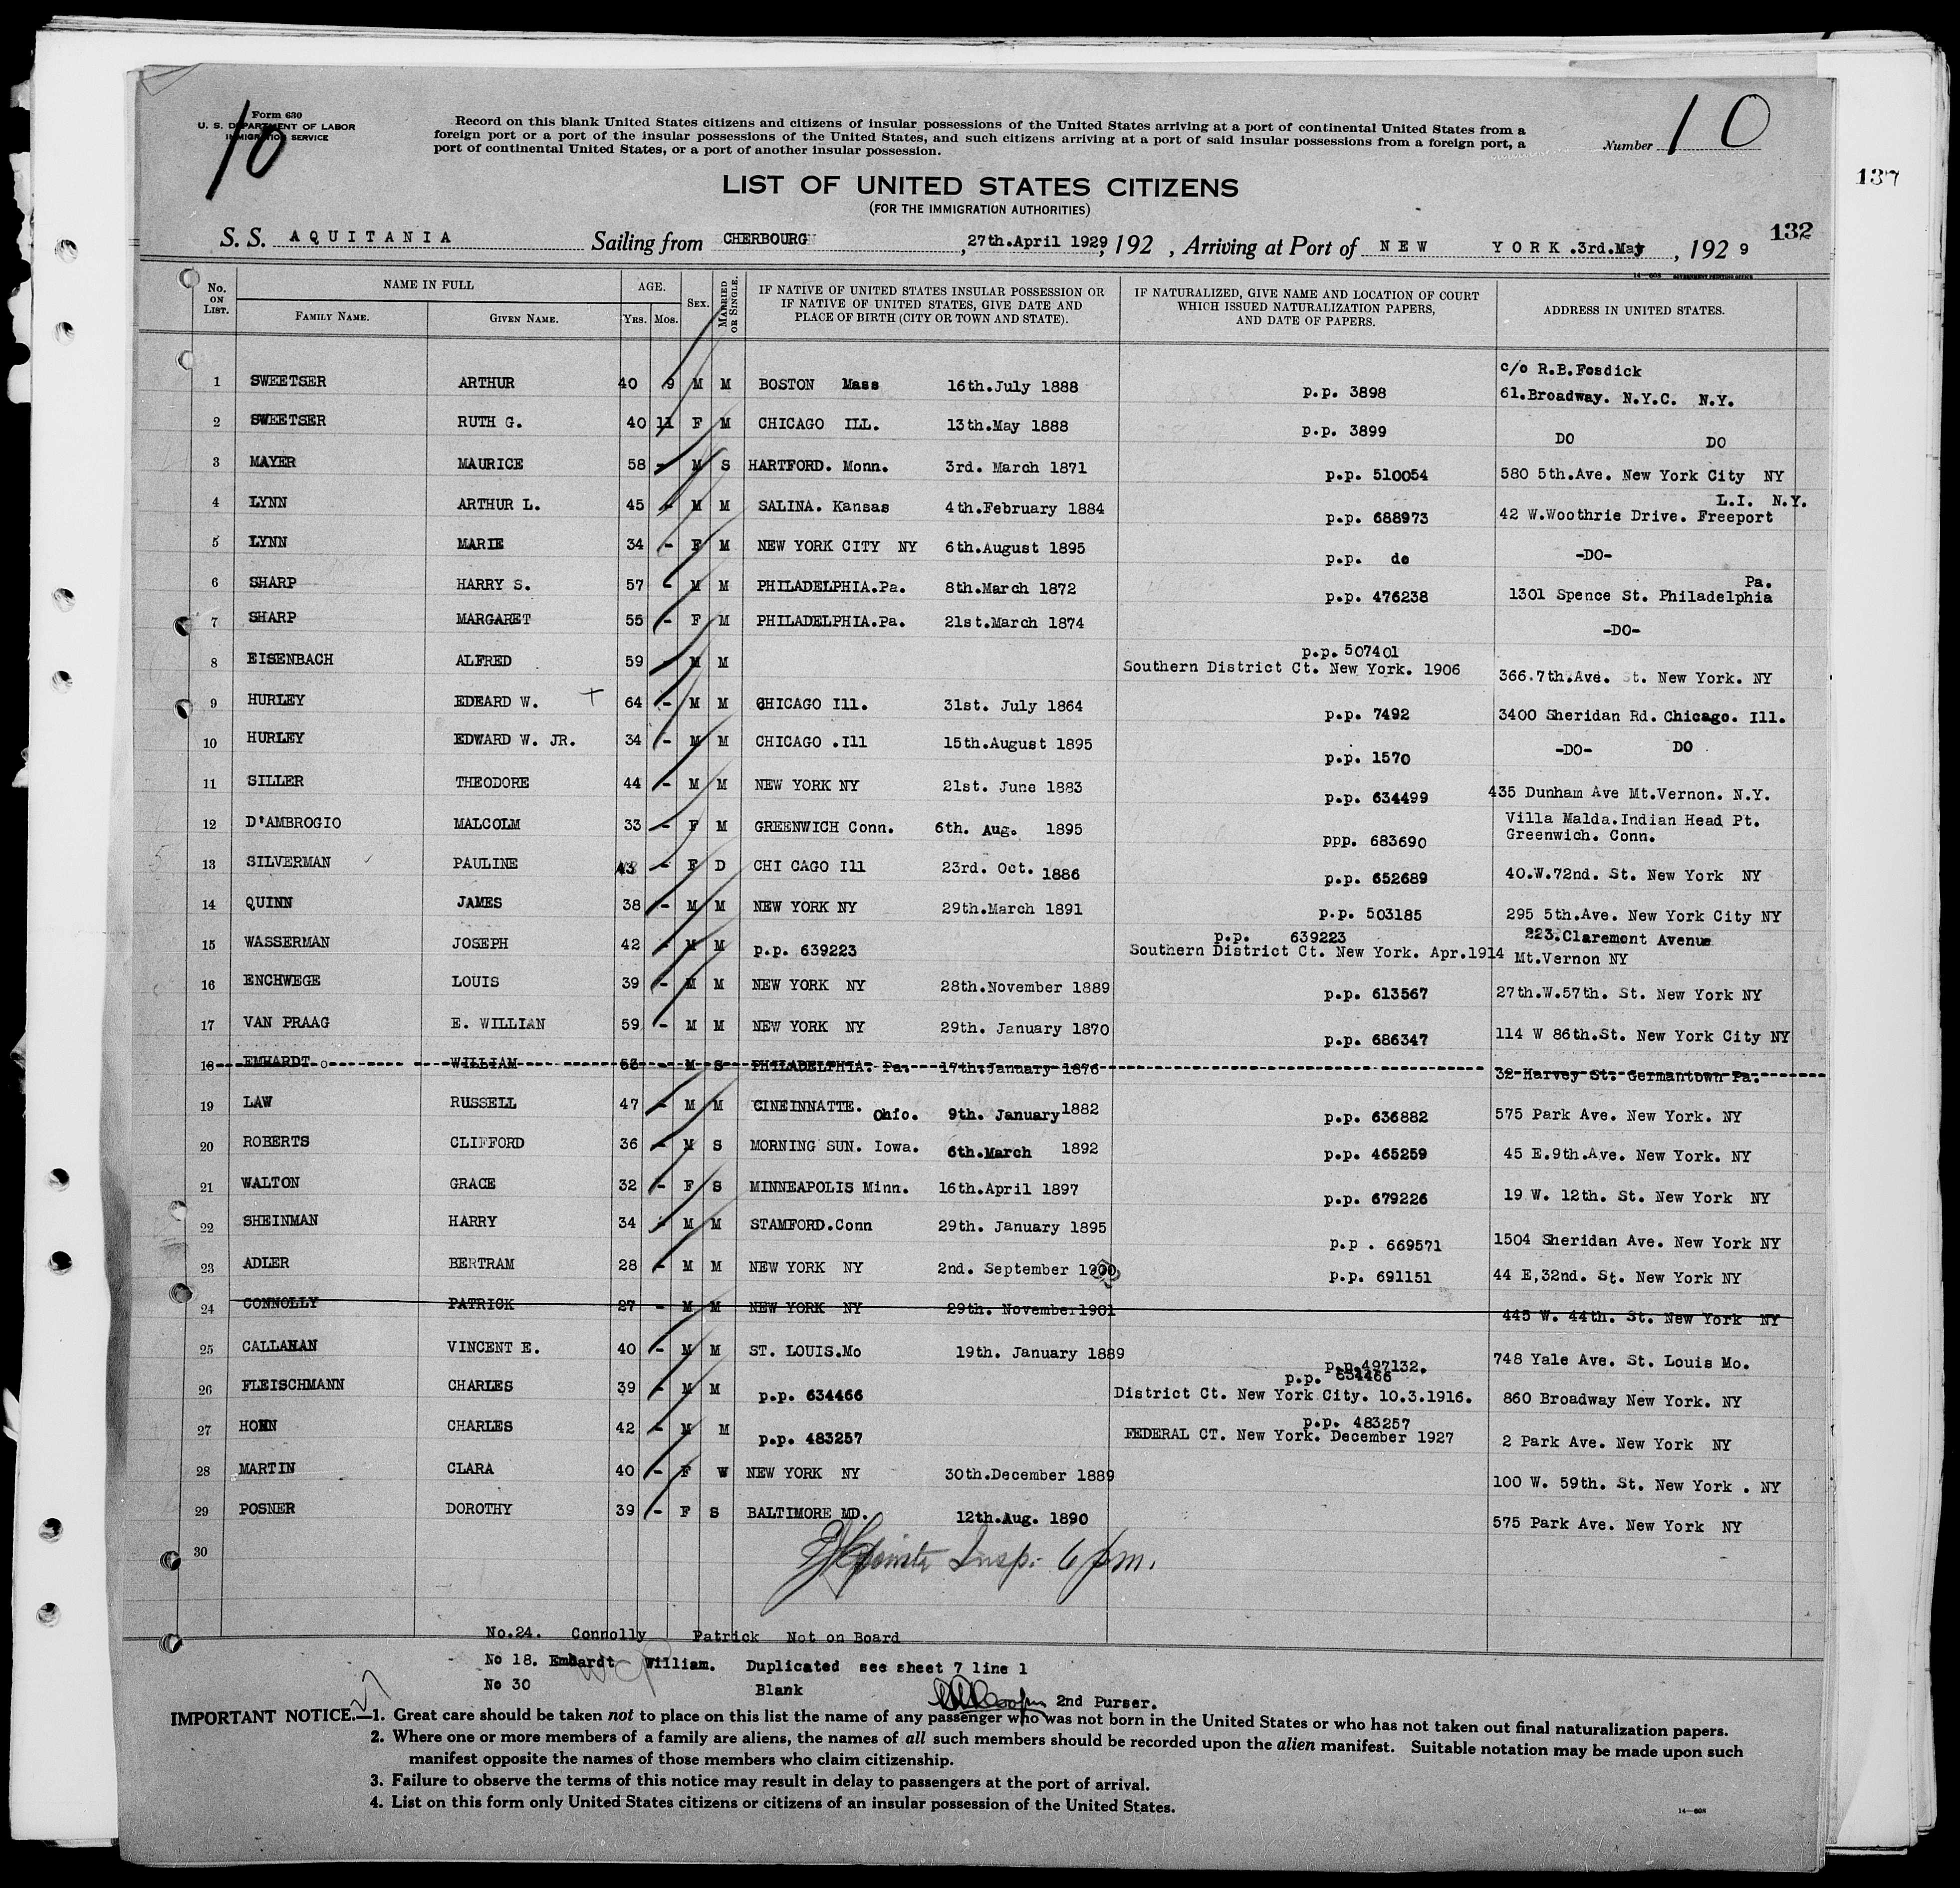 10
Form 630
U. S. DEPARTMENT OF LABOR
IMMIGRATION SERVICE
Record on this blank United States citizens and citizens of insular possessions of the United States arriving at a port of continental United States from a
foreign port or a port of the insular possessions of the United States, and such citizens arriving at a port of said insular possessions from a foreign port, a
port of continental United States, or a port of another insular possession.
Number 10
137
LIST OF UNITED STATES CITIZENS
(FOR THE IMMIGRATION AUTHORITIES)
132
S. S. AQUITANIA Sailing from CHERBOURG, 27th.April 1929, 192 , Arriving at Port of NEW YORK .3rd.May, 1929
14—608 GOVERNMENT PRINTING OFFICE
No. ON LIST. NAME IN FULL FAMILY NAME. GIVEN NAME. AGE. YRS. MOS. SEX. MARRIED OR SINGLE. IF NATIVE OF UNITED STATES INSULAR POSSESSION OR IF NATIVE OF UNITED STATES, GIVE DATE AND PLACE OF BIRTH (CITY OR TOWN AND STATE). IF NATURALIZED, GIVE NAME AND LOCATION OF COURT WHICH ISSUED NATURALIZATION PAPERS, AND DATE OF PAPERS. ADDRESS IN UNITED STATES.
c/o R.B.Fosdick
1 SWEETSER ARTHUR 40 9 M M BOSTON Mass 16th.July 1888 p.p. 3898 61.Broadway. N.Y.C. N.Y.
2 SWEETSER RUTH G. 40 11 F M CHICAGO ILL. 13th.May 1888 p.p. 3899 DO DO
3 MAYER MAURICE 58 - M S HARTFORD. Monn. 3rd. March 1871 p.p. 510054 580 5th.Ave. New York City NY
L.I. N.Y.
4 LYNN ARTHUR L. 45 - M M SALINA. Kansas 4th.February 1884 p.p. 688973 42 W.Woothrie Drive. Freeport
5 LYNN MARIE 34 - F M NEW YORK CITY NY 6th.August 1895 p.p. do -DO-
Pa.
6 SHARP HARRY S. 57 - M M PHILADELPHIA.Pa. 8th.March 1872 p.p. 476238 1301 Spence St. Philadelphia
7 SHARP MARGARET 55 - F M PHILADELPHIA.Pa. 21st.March 1874 -DO-
p.p. 507401
8 EISENBACH ALFRED 59 - M M Southern District Ct. New York. 1906 366.7th.Ave. St. New York. NY
9 HURLEY EDEARD W. + 64 - M M CHICAGO Ill. 31st. July 1864 p.p. 7492 3400 Sheridan Rd. Chicago. Ill.
10 HURLEY EDWARD W. JR. 34 - M M CHICAGO .Ill 15th.August 1895 p.p. 1570 -DO- DO
11 SILLER THEODORE 44 - M M NEW YORK NY 21st. June 1883 p.p. 634499 435 Dunham Ave Mt.Vernon. N.Y.
Villa Malda.Indian Head Pt.
12 D'AMBROGIO MALCOLM 33 - F M GREENWICH Conn. 6th. Aug. 1895 ppp. 683690 Greenwich. Conn.
13 SILVERMAN PAULINE 43 - F D CHI CAGO Ill 23rd. Oct. 1886 p.p. 652689 40.W.72nd. St. New York NY
14 QUINN JAMES 38 - M M NEW YORK NY 29th.March 1891 p.p. 503185 295 5th.Ave. New York City NY
p.p. 639223 223.Claremont Avenue
15 WASSERMAN JOSEPH 42 - M M p.p. 639223 Southern District Ct. New York. Apr.1914 Mt.Vernon NY
16 ENCHWEGE LOUIS 39 - M M NEW YORK NY 28th.November 1889 p.p. 613567 27th.W.57th. St. New York NY
17 VAN PRAAG E. WILLIAN 59 - M M NEW YORK NY 29th. January 1870 p.p. 686347 114 W 86th.St. New York City NY
18 EMHARDT WILLIAM 53 - M S PHILADELPHIA. Pa. 17th.January 1876 32 Harvey St. Germantown Pa.
19 LAW RUSSELL 47 - M M CINEINNATTE. Ohio. 9th. January 1882 p.p. 636882 575 Park Ave. New York. NY
20 ROBERTS CLIFFORD 36 - M S MORNING SUN. Iowa. 6th.March 1892 p.p. 465259 45 E.9th.Ave. New York. NY
21 WALTON GRACE 32 - F S MINNEAPOLIS Minn. 16th.April 1897 p.p. 679226 19 W. 12th. St. New York NY
22 SHEINMAN HARRY 34 - M M STAMFORD.Conn 29th. January 1895 p.p . 669571 1504 Sheridan Ave. New York NY
23 ADLER BERTRAM 28 - M M NEW YORK NY 2nd. September 1900 p.p. 691151 44 E,32nd. St. New York NY
24 CONNOLLY PATRICK 27 - M M NEW YORK NY 29th. November 1901 445 W. 44th. St. New York NY
25 CALLAHAN VINCENT E. 40 - M M ST. LOUIS.Mo 19th. January 1889 p.p.497132. 748 Yale Ave. St. Louis Mo.
p.p. 634466
26 FLEISCHMANN CHARLES 39 - M M p.p. 634466 District Ct. New York City. 10.3.1916. 860 Broadway New York. NY
p.p. 483257
27 HOHN CHARLES 42 - M M p.p. 483257 FEDERAL CT. New York. December 1927 2 Park Ave. New York NY
28 MARTIN CLARA 40 - F W NEW YORK NY 30th.December 1889 100 W. 59th. St. New York . NY
29 POSNER DOROTHY 39 - F S BALTIMORE MD. 12th.Aug. 1890 575 Park Ave. New York NY
30
Insp. 6 pm.
No.24. Connolly Patrick Not on Board
No 18. Emhardt William. Duplicated see sheet 7 line 1
No 30 Blank
2nd Purser.
IMPORTANT NOTICE.—1. Great care should be taken not to place on this list the name of any passenger who was not born in the United States or who has not taken out final naturalization papers.
2. Where one or more members of a family are aliens, the names of all such members should be recorded upon the alien manifest. Suitable notation may be made upon such
manifest opposite the names of those members who claim citizenship.
3. Failure to observe the terms of this notice may result in delay to passengers at the port of arrival.
4. List on this form only United States citizens or citizens of an insular possession of the United States.
14—608